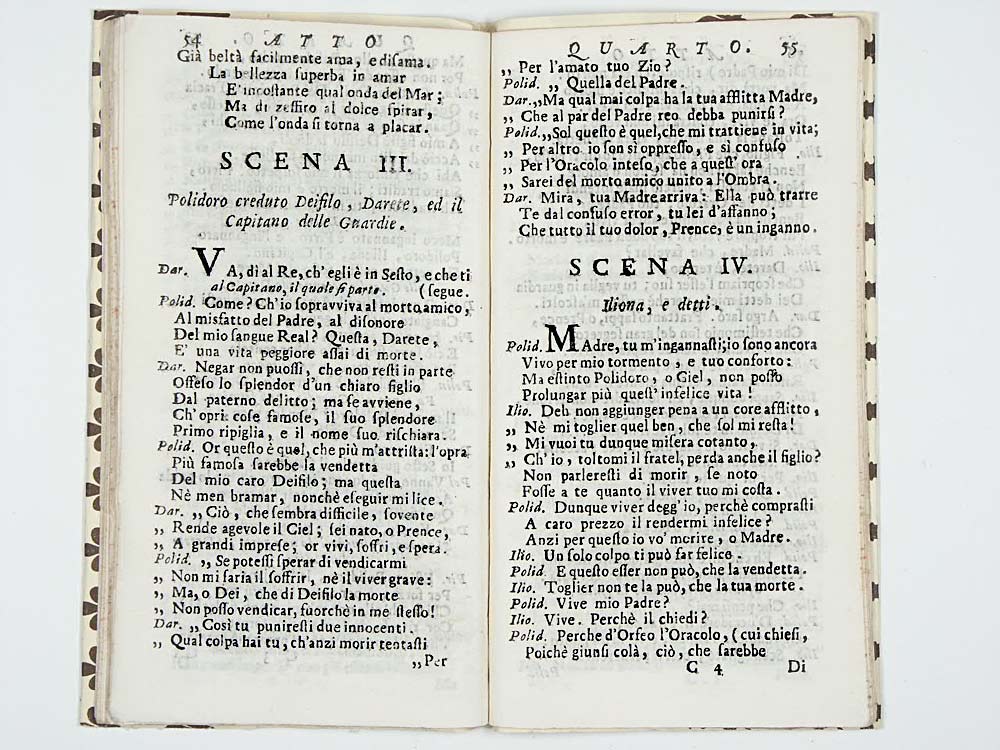 54 ATTO
Già beltà facilmente ama, e disama.
La bellezza superba in amar
E' incostante qual onda del Mar;
Ma di zeffiro al dolce spirar,
Come l'onda si torna a placar.
SCENA III.
Polidoro creduto Deifilo, Darete, ed il
Capitano delle Guardie.
Dar. VA, dì al Re, ch' egli è in Sesto, e che ti
al Capitano, il quale si parte. (segue.
Polid. Come? Ch'io sopravviva al morto amico,
Al misfatto del Padre, al disonore
Del mio sangue Real? Questa, Darete,
E' una vita peggiore assai di morte.
Dar. Negar non puossi, che non resti in parte
Offeso lo splendor d'un chiaro figlio
Dal paterno delitto; ma se avviene,
Ch' opri cose famose, il suo splendore
Primo ripiglia, e il nome suo rischiara.
Polid. Or questo è quel, che più m'attrista: l'opra
Più famosa sarebbe la vendetta
Del mio caro Deifilo; ma questa
Nè men bramar, nonchè eseguir mi lice.
Dar. „Ciò, che sembra difficile, sovente
„ Rende agevole il Ciel; sei nato, o Prence,
„ A grandi imprese; or vivi, soffri, e spera.
Polid. „ Se potessi sperar di vendicarmi
„ Non mi saria il soffrir, nè il viver grave:
„ Ma, o Dei, che di Deifilo la morte
„ Non posso vendicar, fuorchè in me stesso!
Dar. „ Così tu puniresti due innocenti.
„ Qual colpa hai tu, ch'anzi morir tentasti
„Per
QUARTO. 55
„ Per l'amato tuo Zio?
Polid. „ Quella del Padre.
Dar. „Ma qual mai colpa ha la tua afflitta Madre,
„ Che al par del Padre reo debba punirsi?
Polid. „Sol questo è quel, che mi trattiene in vita;
„ Per altro io son sì oppresso, e sì confuso
„ Per l'Oracolo inteso, che a quest' ora
„ Sarei del morto amico unito a l'Ombra.
Dar. Mira, tua Madre arriva: Ella può trarre
Te dal confuso error, tu lei d'affanno;
Che tutto il tuo dolor, Prence, è un inganno.
SCENA IV.
Iliona, e detti.
Polid. MAdre, tu m'ingannasti; io sono ancora
Vivo per mio tormento, e tuo conforto:
Ma estinto Polidoro, o Ciel, non posso
Prolungar più quest' infelice vita!
Ilio. Deh non aggiunger pena a un core afflitto,
„ Nè mi toglier quel ben, che sol mi resta!
„ Mi vuoi tu dunque misera cotanto,
„ Ch' io, toltomi il fratel, perda anche il figlio?
Non parleresti di morir, se noto
Fosse a te quanto il viver tuo mi costa.
Polid. Dunque viver degg' io, perchè comprasti
A caro prezzo il rendermi infelice?
Anzi per questo io vo' morire, o Madre.
Ilio. Un solo colpo ti può far felice.
Polid. E questo esser non può, che la vendetta.
Ilio. Toglier non te la può, che la tua morte.
Polid. Vive mio Padre?
Ilio. Vive. Perchè il chiedi?
Polid. Perche d'Orfeo l'Oracolo, (cui chiesi,
Poichè giunsi colà, ciò, che sarebbe
C 4 Di